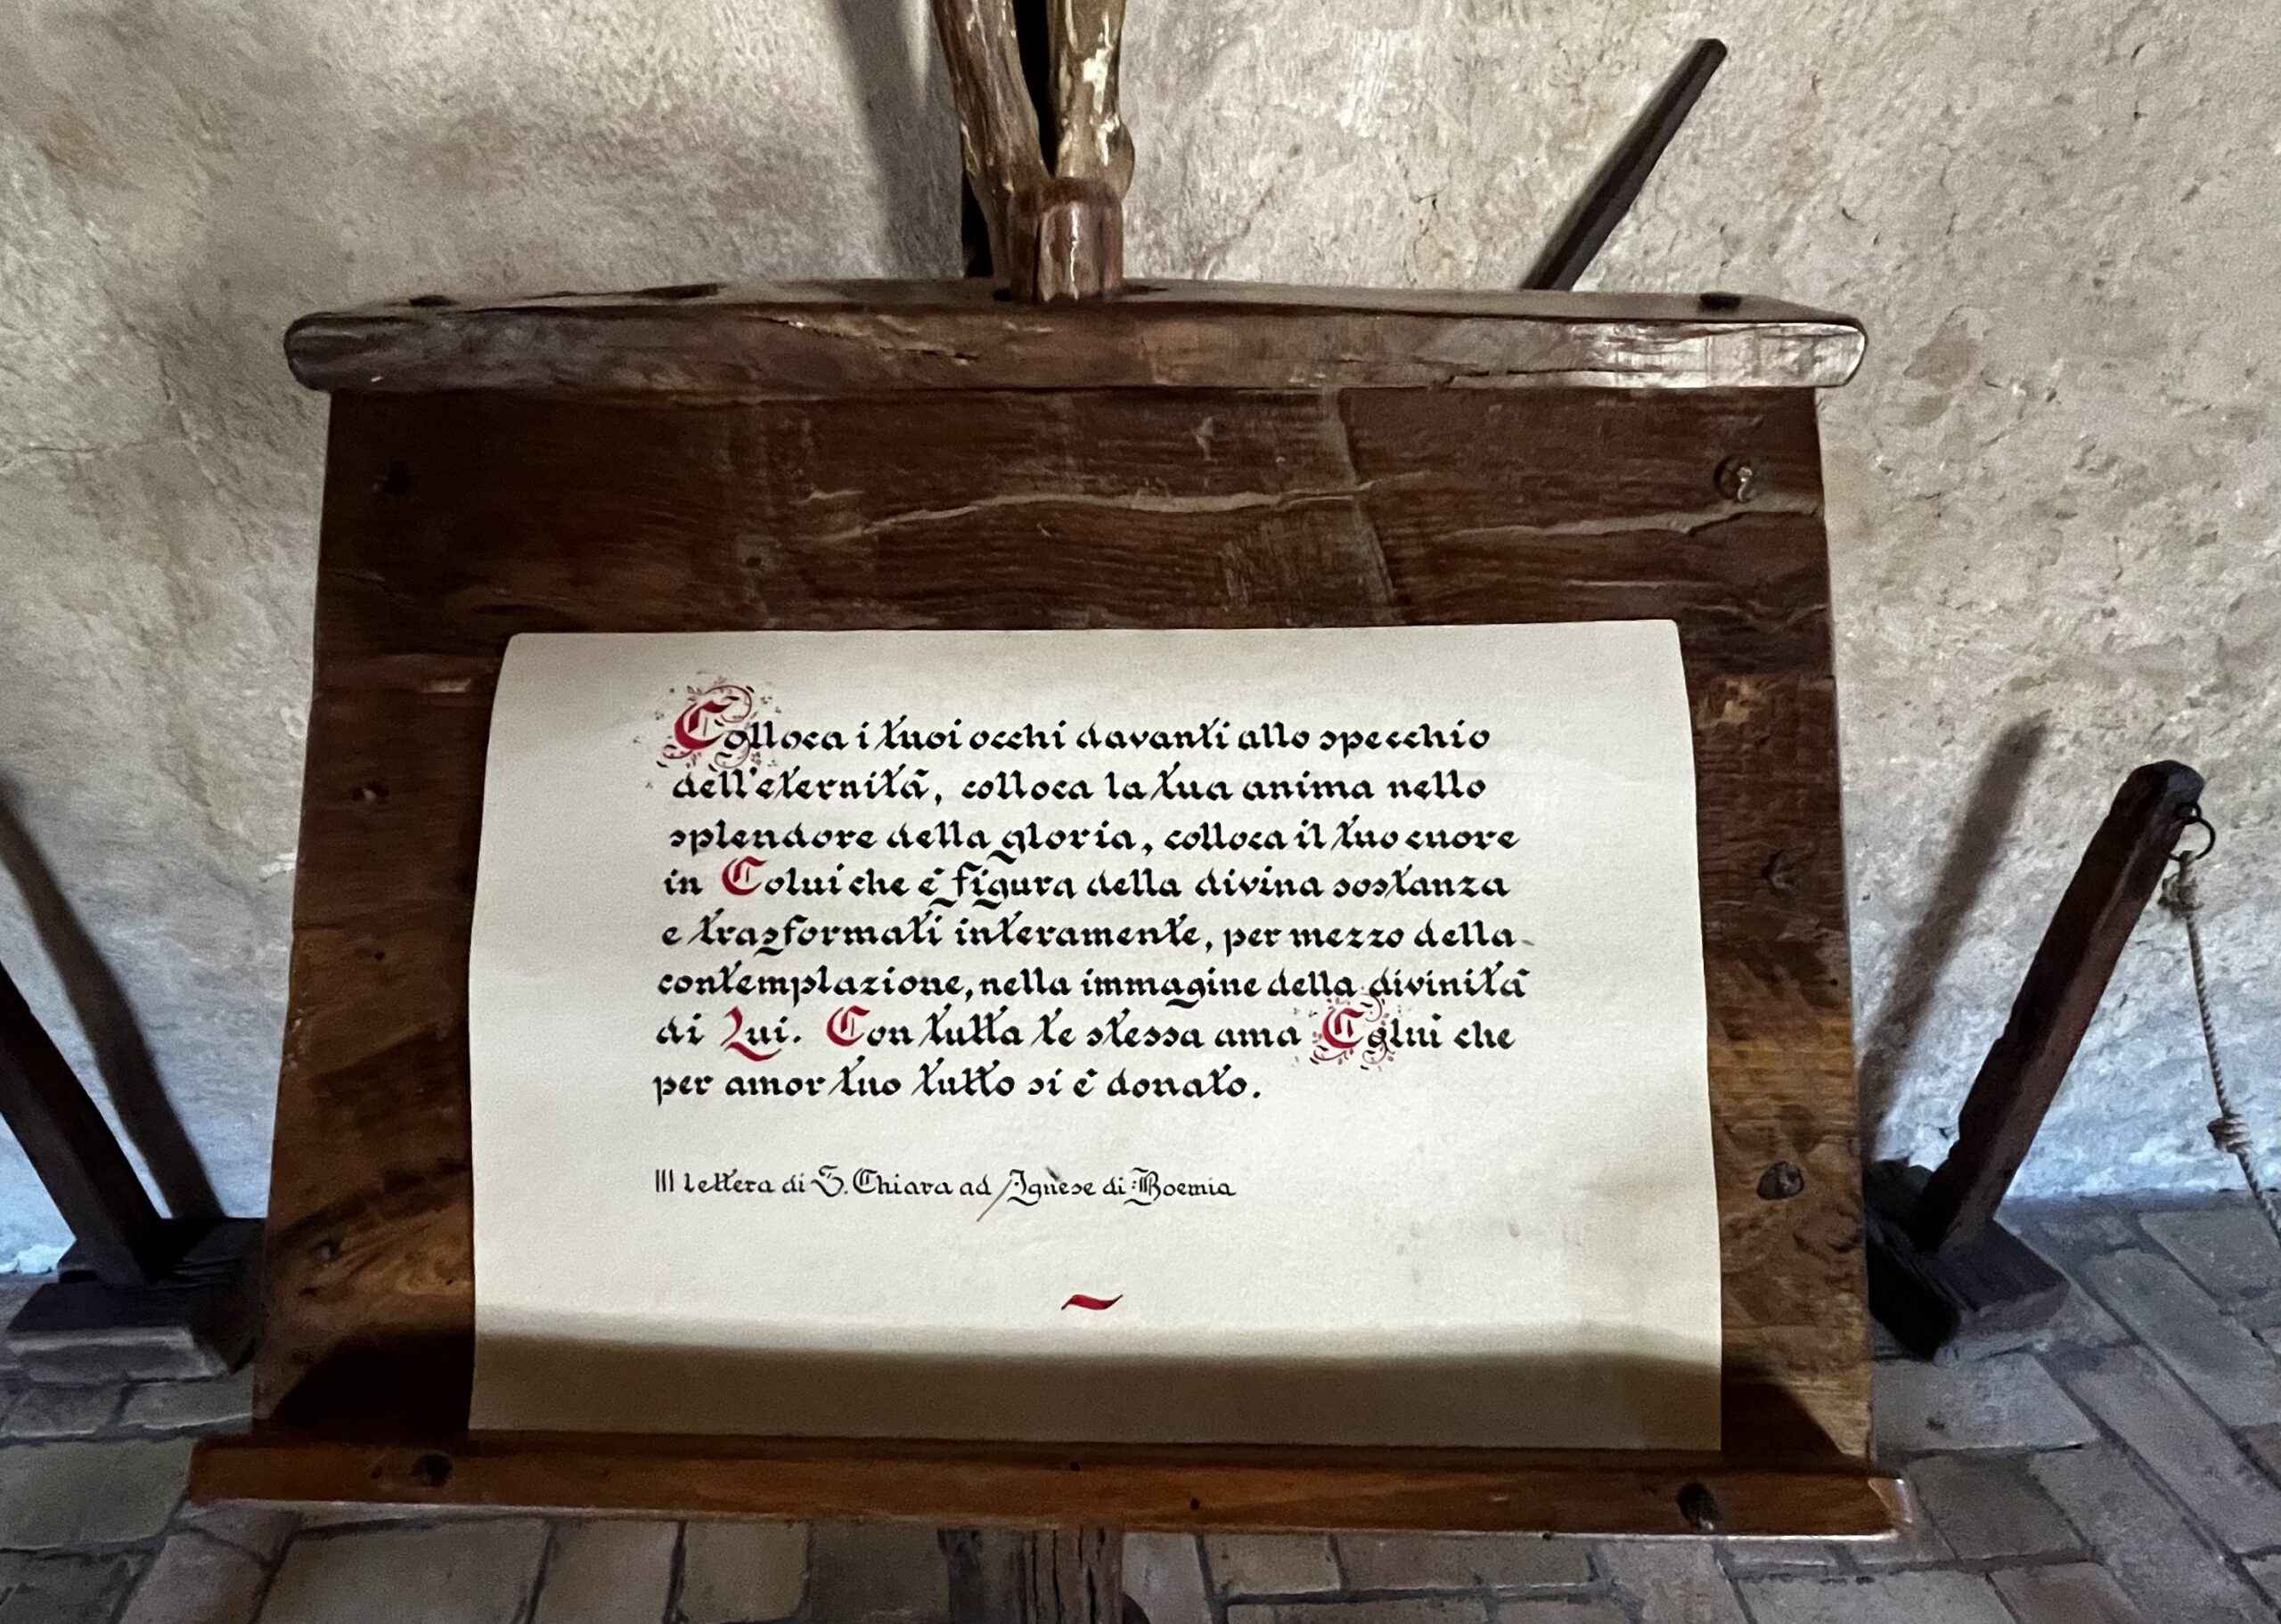 Colloca i tuoi occhi davanti allo specchio
dell'eternità, colloca la tua anima nello
splendore della gloria, colloca il tuo cuore
in Colui che è figura della divina sostanza
e trasformati interamente, per mezzo della
contemplazione, nella immagine della divinità
di Lui. Con tutta te stessa ama Colui che
per amor tuo tutto si è donato.
III lettera di S. Chiara ad Agnese di Boemia